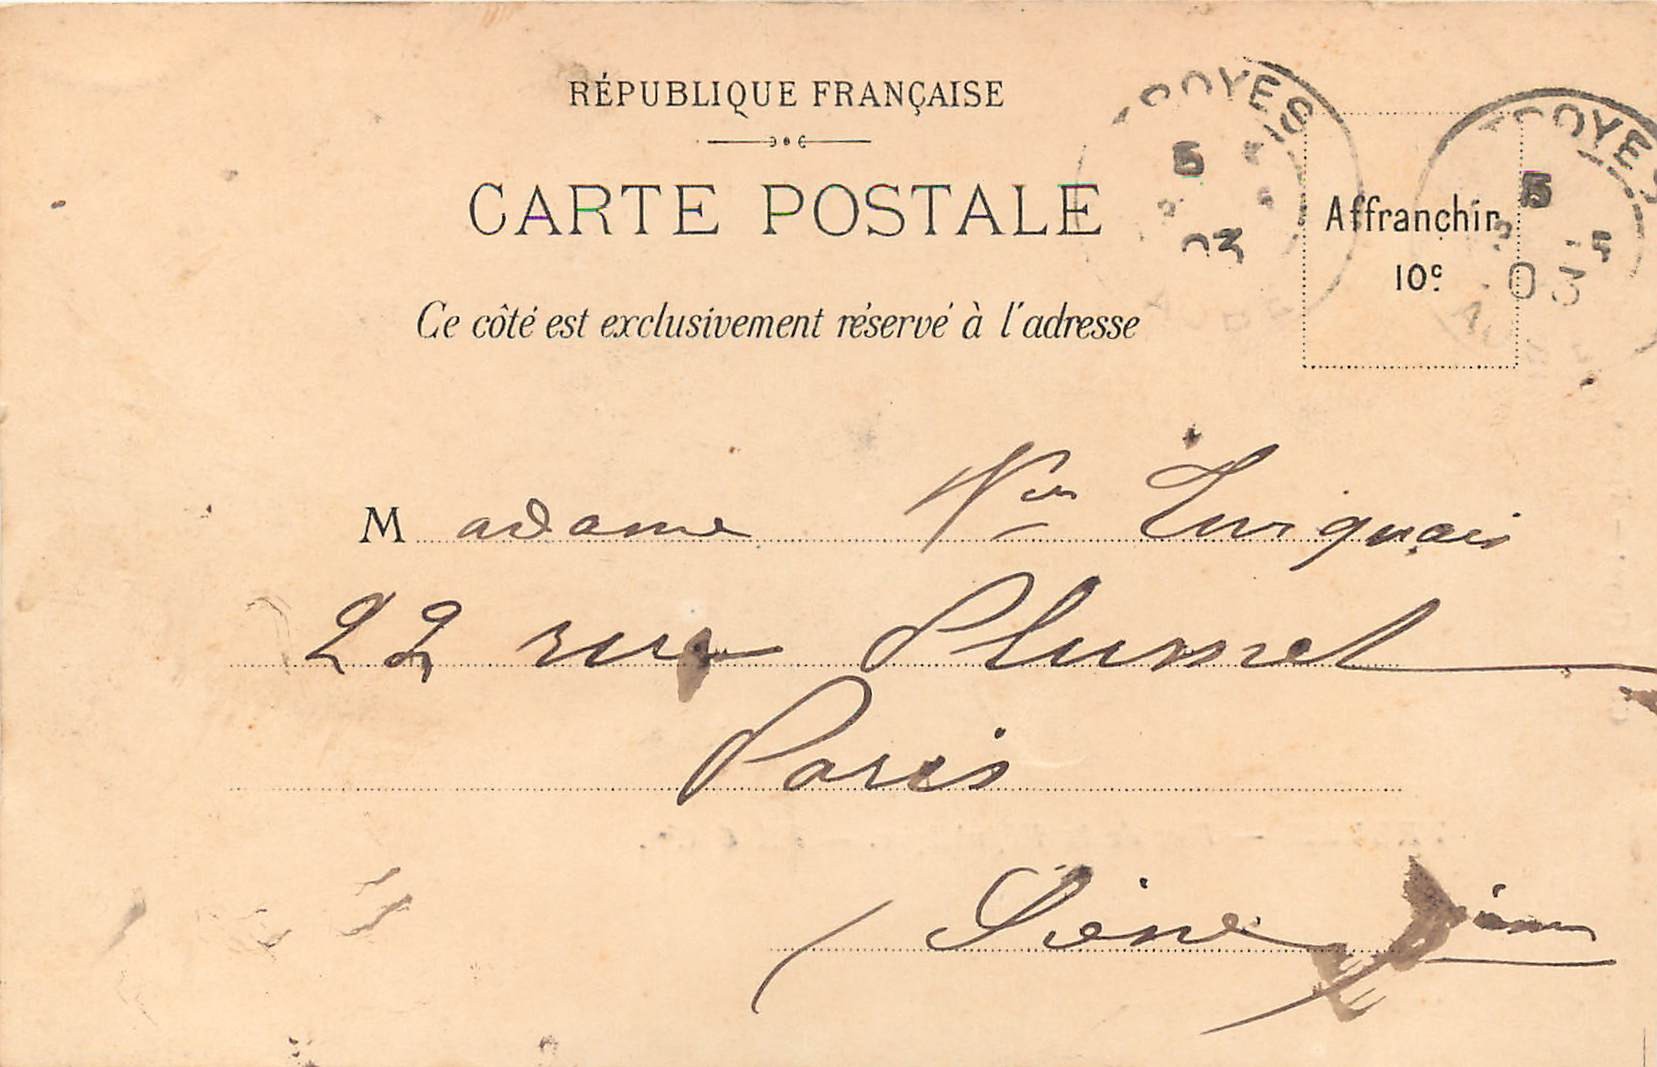 RÉPUBLIQUE FRANÇAISE
CARTE POSTALE
Ce côté est exclusivement réservé à l'adresse
TROYES
5
03
AUBE
Affranchir
10c
TROYES
5
03
AUBE
Madame Vve Turquais
22 rue Plumet
Paris
(Seine)